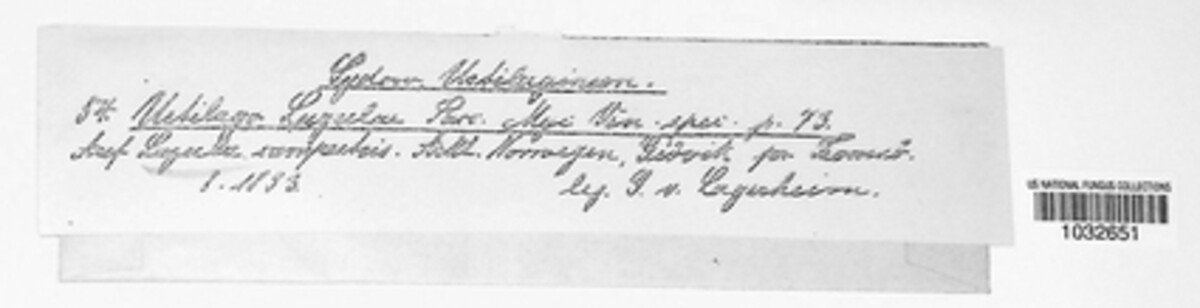 Sydow Ustilagineen.
54. Ustilago Luzulae Sacc. Myc. Ven. spec. p. 73.
Auf Luzula campestris. Norwegen, Tromsö.
8. 1893.
leg. G. v. Lagerheim.
US NATIONAL FUNGUS COLLECTIONS
1032651